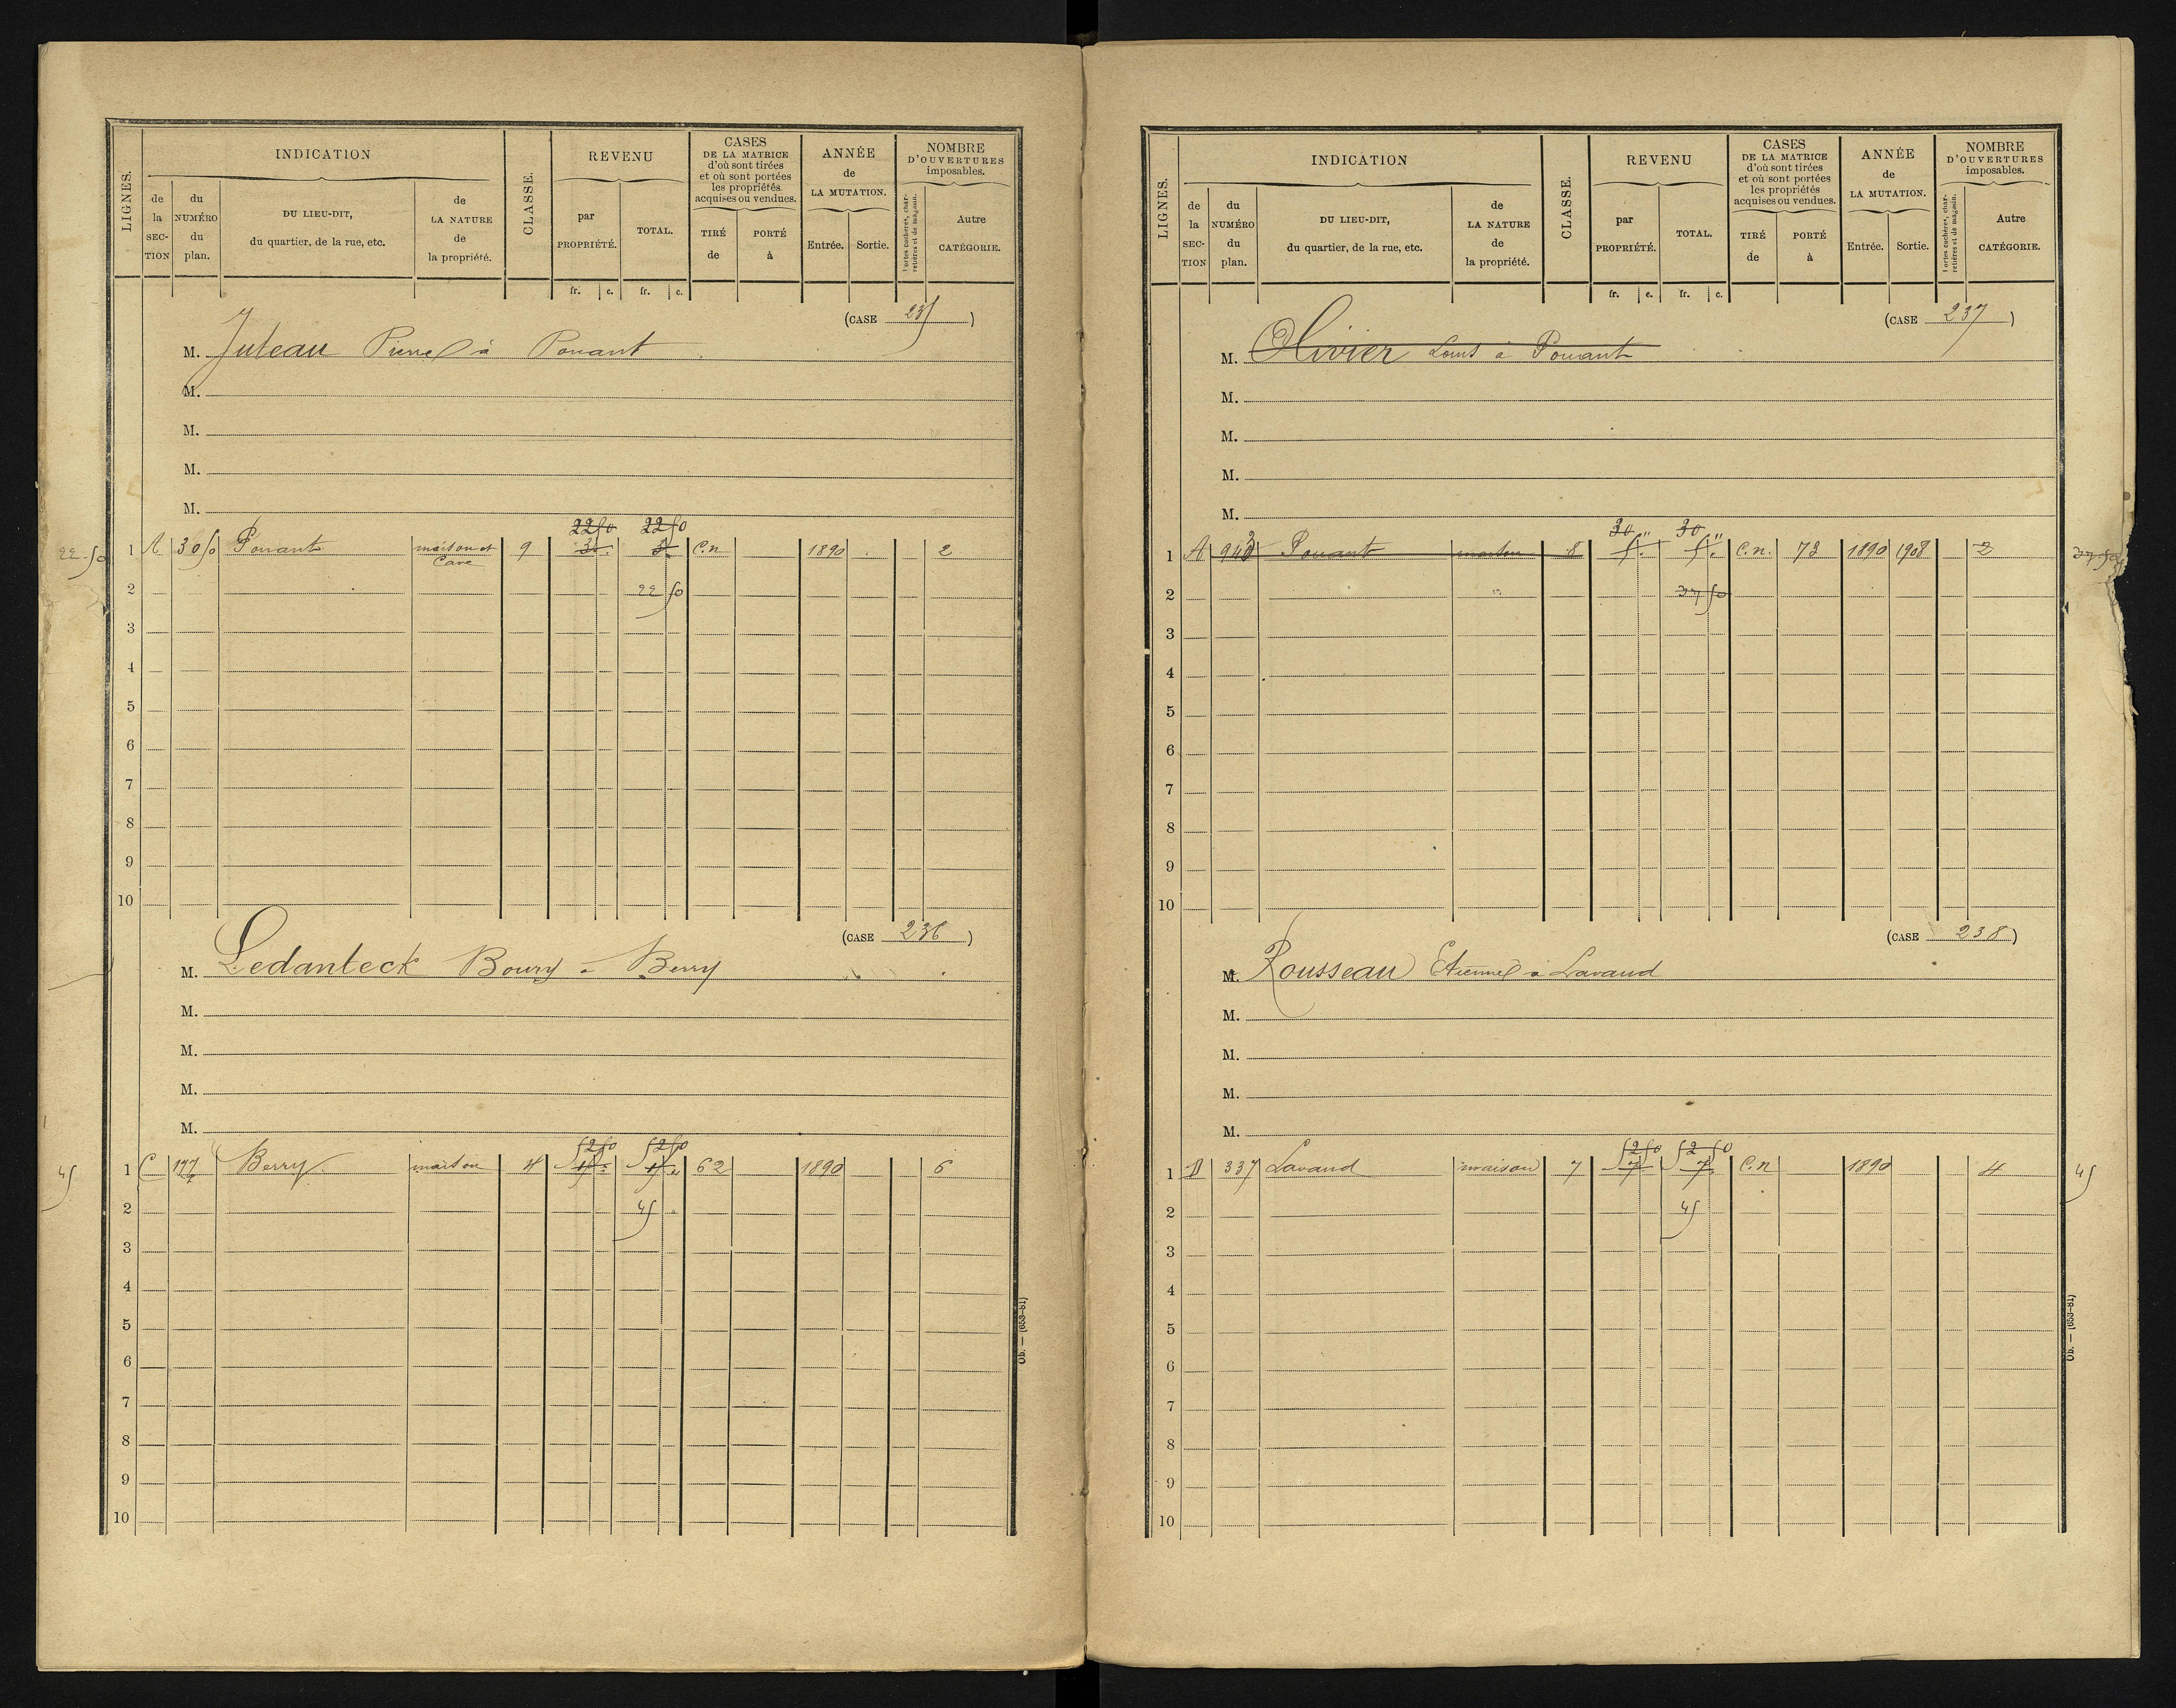 LIGNES.
INDICATION
de la SECTION
du NUMÉRO du plan.
DU LIEU-DIT, du quartier, de la rue, etc.
de LA NATURE de la propriété.
CLASSE.
REVENU
par PROPRIÉTÉ.
TOTAL.
CASES DE LA MATRICE d'où sont tirées et où sont portées les propriétés acquises ou vendues.
TIRÉ de
PORTÉ à
ANNÉE de LA MUTATION.
Entrée. Sortie.
NOMBRE D'OUVERTURES imposables.
Portes cochères, charretières et de magasin.
Autre CATÉGORIE.
fr. c. fr. c.
(CASE 235)
M. Juteau Pierre à Pouant
M.
M.
M.
M.
22 50 22 50
22 50 1 A 305 Pouant maison et Cave 9 3 . 3 . C.n 1890 2
2 22 50
3
4
5
6
7
8
9
10
(CASE 236)
M. Ledanteck Boury à Berry
M.
M.
M.
M.
52 50 52 50
45 1 C 177 Berry maison 4 62 1890 6
2 45
3
4
5
6
7
8
9
10
Ob. — (653-81)
LIGNES.
INDICATION
de la SECTION
du NUMÉRO du plan.
DU LIEU-DIT, du quartier, de la rue, etc.
de LA NATURE de la propriété.
CLASSE.
REVENU
par PROPRIÉTÉ.
TOTAL.
CASES DE LA MATRICE d'où sont tirées et où sont portées les propriétés acquises ou vendues.
TIRÉ de
PORTÉ à
ANNÉE de LA MUTATION.
Entrée. Sortie.
NOMBRE D'OUVERTURES imposables.
Portes cochères, charretières et de magasin.
Autre CATÉGORIE.
fr. c. fr. c.
(CASE 237)
M. Olivier Louis à Pouant
M.
M.
M.
M.
30 " 30 "
1 A 943 Pouant maison 8 5 . 5 . C.n. 73 1890 1908 2 37 50
2 37 50
3
4
5
6
7
8
9
10
(CASE 238)
M. Rousseau Etienne à Lavaud
M.
M.
M.
M.
52 50 52 50
1 D 337 Lavaud maison 7 7 . 7 . C.n 1890 4 45
2 45
3
4
5
6
7
8
9
10
Ob. — (653-81)